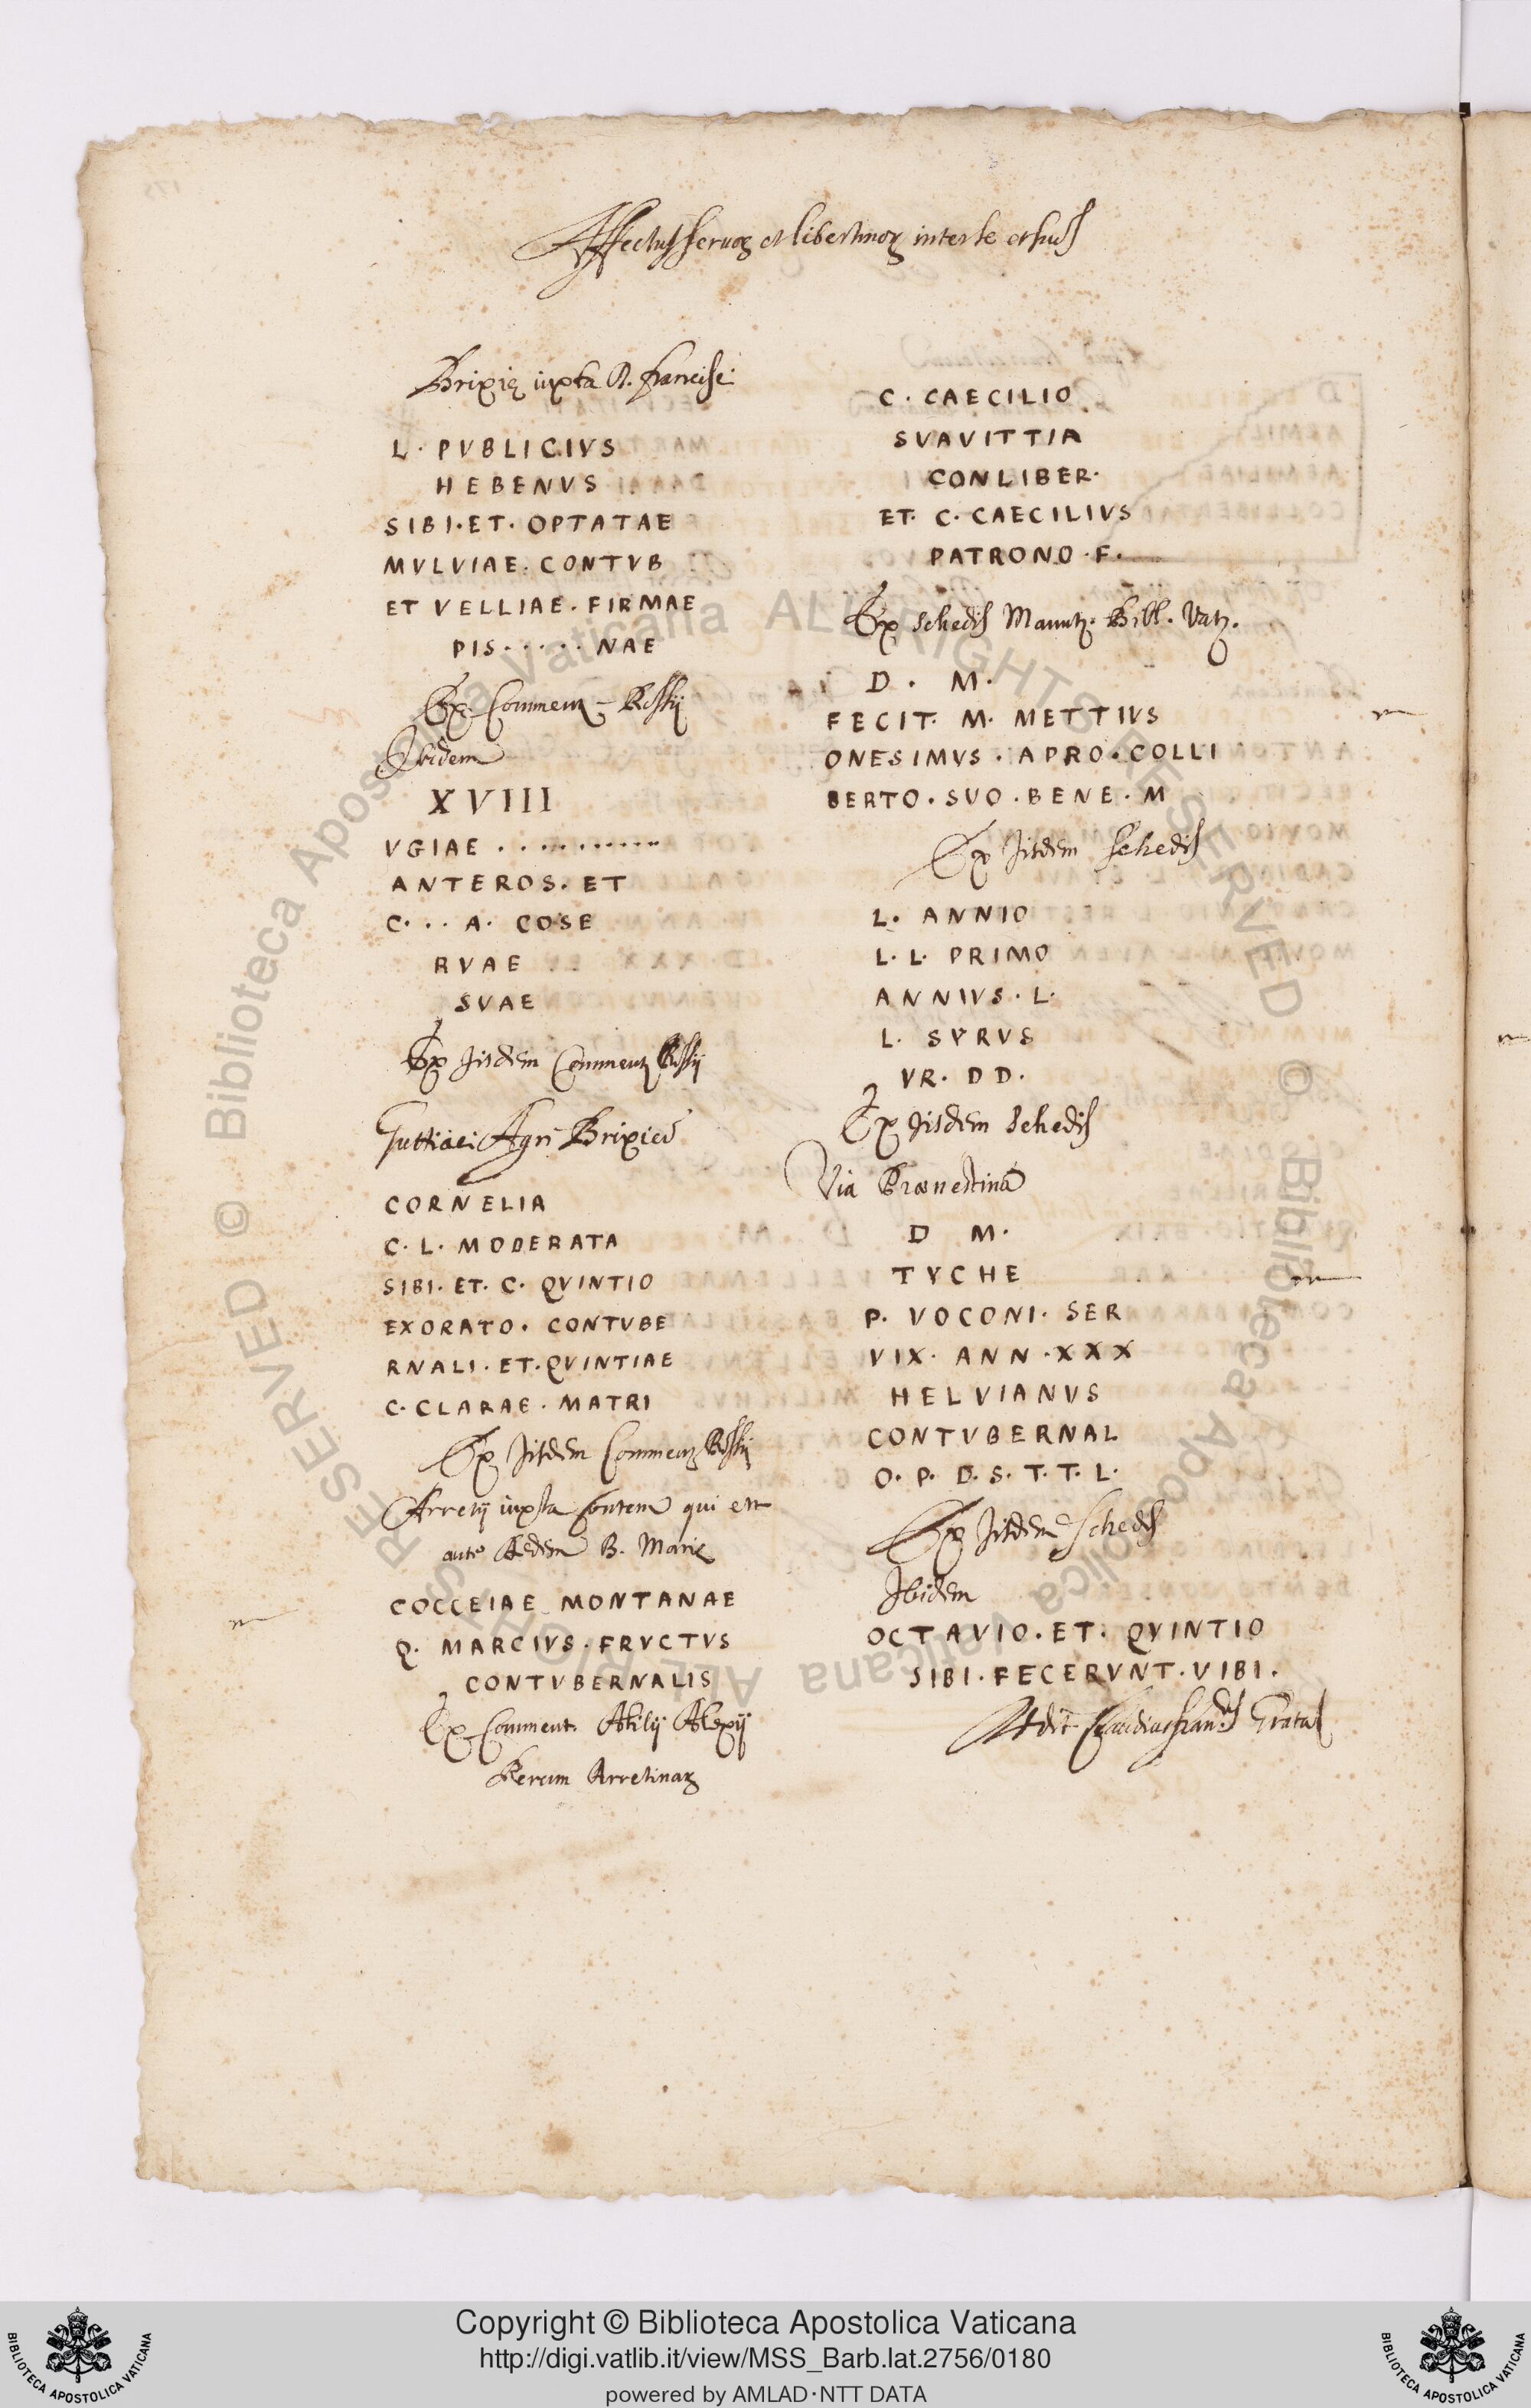 Affectus seruoꝝ et libertinoꝝ inter se et suos
Brixię iuxta D. Francisc:
L. PVBLICIVS
HEBENVS
SIBI·ET·OPTATAE
MVLVIAE·CONTVB
ET VELLIAE·FIRMAE
PIS·····NAE
Ex Comment Rossij
Ibidem
XVIII
VGIAE ···········
ANTEROS·ET
C··· A· COSE
RVAE
SVAE
Ex Jisdem Comment Rossij
Agri Brixien
CORNELIA
C·L·MODERATA
SIBI·ET·C·QVINTIO
EXORATO·CONTVBE
RNALI·ET·QVINTIAE
C·CLARAE·MATRI
Ex Jisdem Comment Rossij
Arretij iuxta fontem qui est
ante Aedem B. Marię
COCCEIAE MONTANAE
Q· MARCIVS·FRVCTVS
CONTVBERNALIS
Ex Comment. Atilij Alexij
Rerum Arretinaꝝ
C·CAECILIO
SVAVITTIA
CONLIBER·
ET·C·CAECILIVS
PATRONO·F·
Ex schedis Manutz· Bibl· Vatz·
D· M·
FECIT· M· METTIVS
ONESIMVS·APRO·COLLI
BERTO·SVO·BENE·M
Ex Jisdem schedis
L· ANNIO
L·L· PRIMO
ANNIVS·L·
L· SYRVS
VR· DD·
Ex Jisdem schedis
Via Prænestina
D M·
TYCHE
P· VOCONI· SER
VIX· ANN·XXX
HELVIANVS
CONTVBERNAL
O·P·D·S·T·T·L·
Ex Jisdem schedis
Jbidem
OCTAVIO·ET·QVINTIO
SIBI·FECERVNT·VIBI·
Copyright © Biblioteca Apostolica Vaticana
http://digi.vatlib.it/view/MSS_Barb.lat.2756/0180
powered by AMLAD·NTT DATA